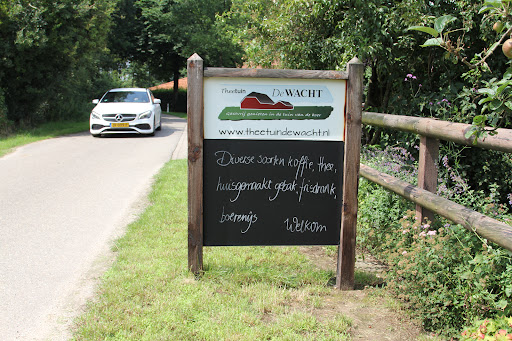 Theetuin De WACHT
Gastvrij genieten in de tuin van de peel
www.theetuindewacht.nl
Diverse soorten koffie, thee,
huisgemaakt gebak, frisdrank,
boerenijs Welkom